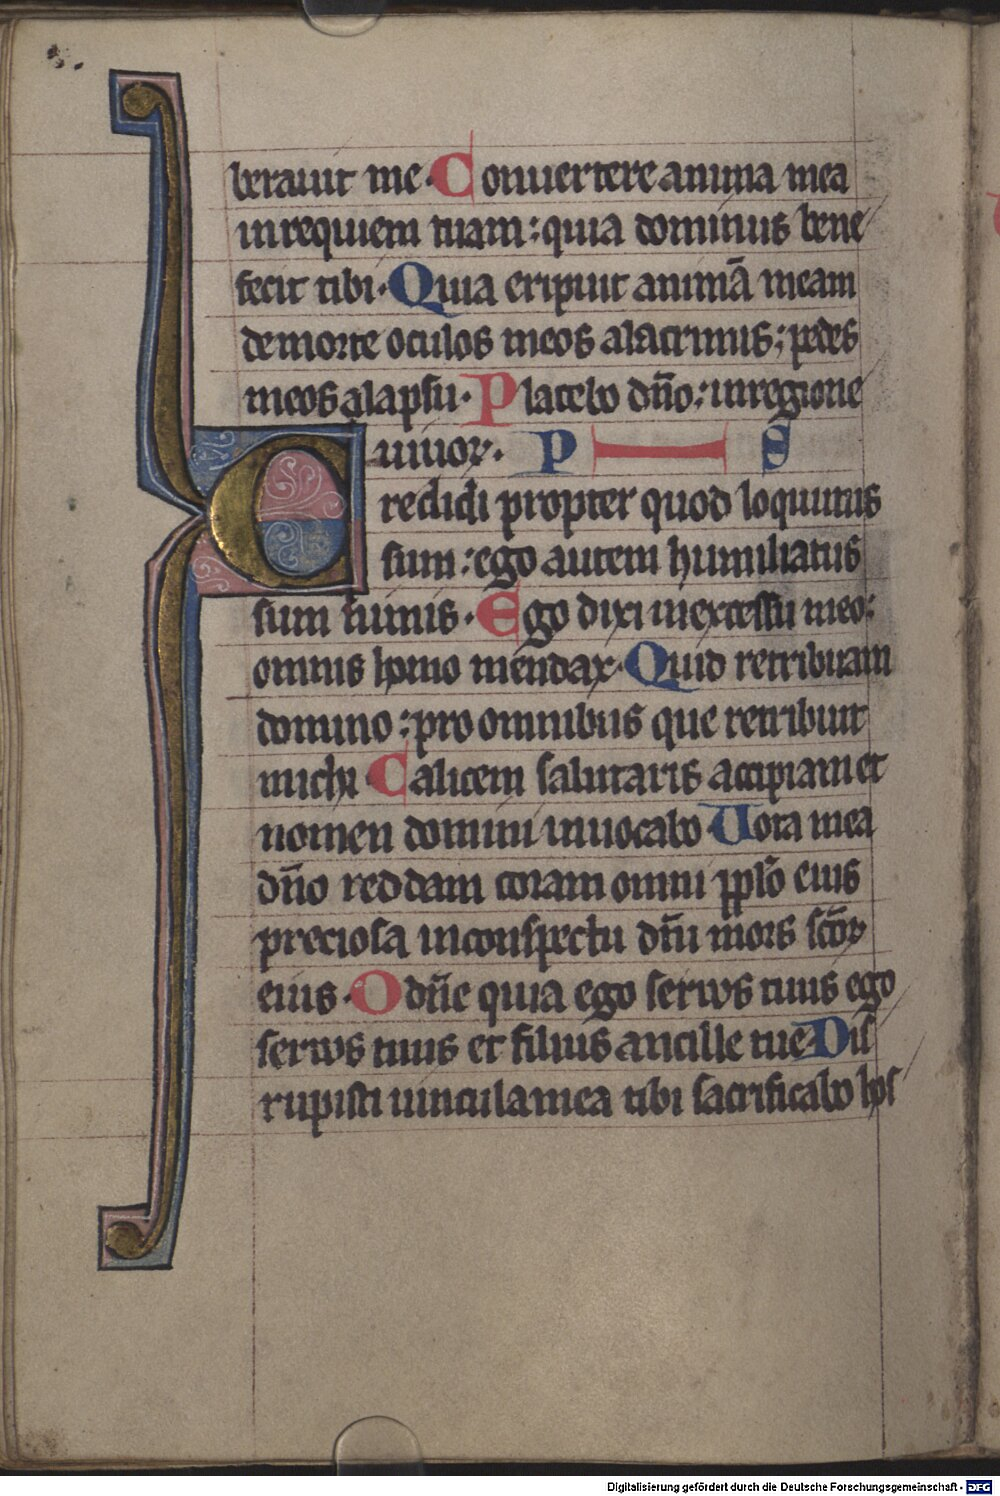 berauit me. Conuertere anima mea
in requiem tuam: quia dominus bene
fecit tibi. Quia eripuit animā meam
de morte oculos meos a lacrimis: pedes
meos a lapsu. Placebo dño: in regione
uiuor. P S
Credidi propter quod loquutus
sum: ego autem humiliatus
sum nimis. Ego dixi in excessu meo:
omnis homo mendax. Quid retribuam
domino: pro omnibus que retribuit
michi Calicem salutaris accipiam et
nomen domini inuocabo Uota mea
dño reddam coram omni pplo eius
preciosa in conspectu dñi mors scōꝝ
eius. O dñe quia ego seruus tuus ego
seruus tuus et filius ancille tue Dis
rupisti uincula mea tibi sacrificabo hos
Digitalisierung gefördert durch die Deutsche Forschungsgemeinschaft - DFG